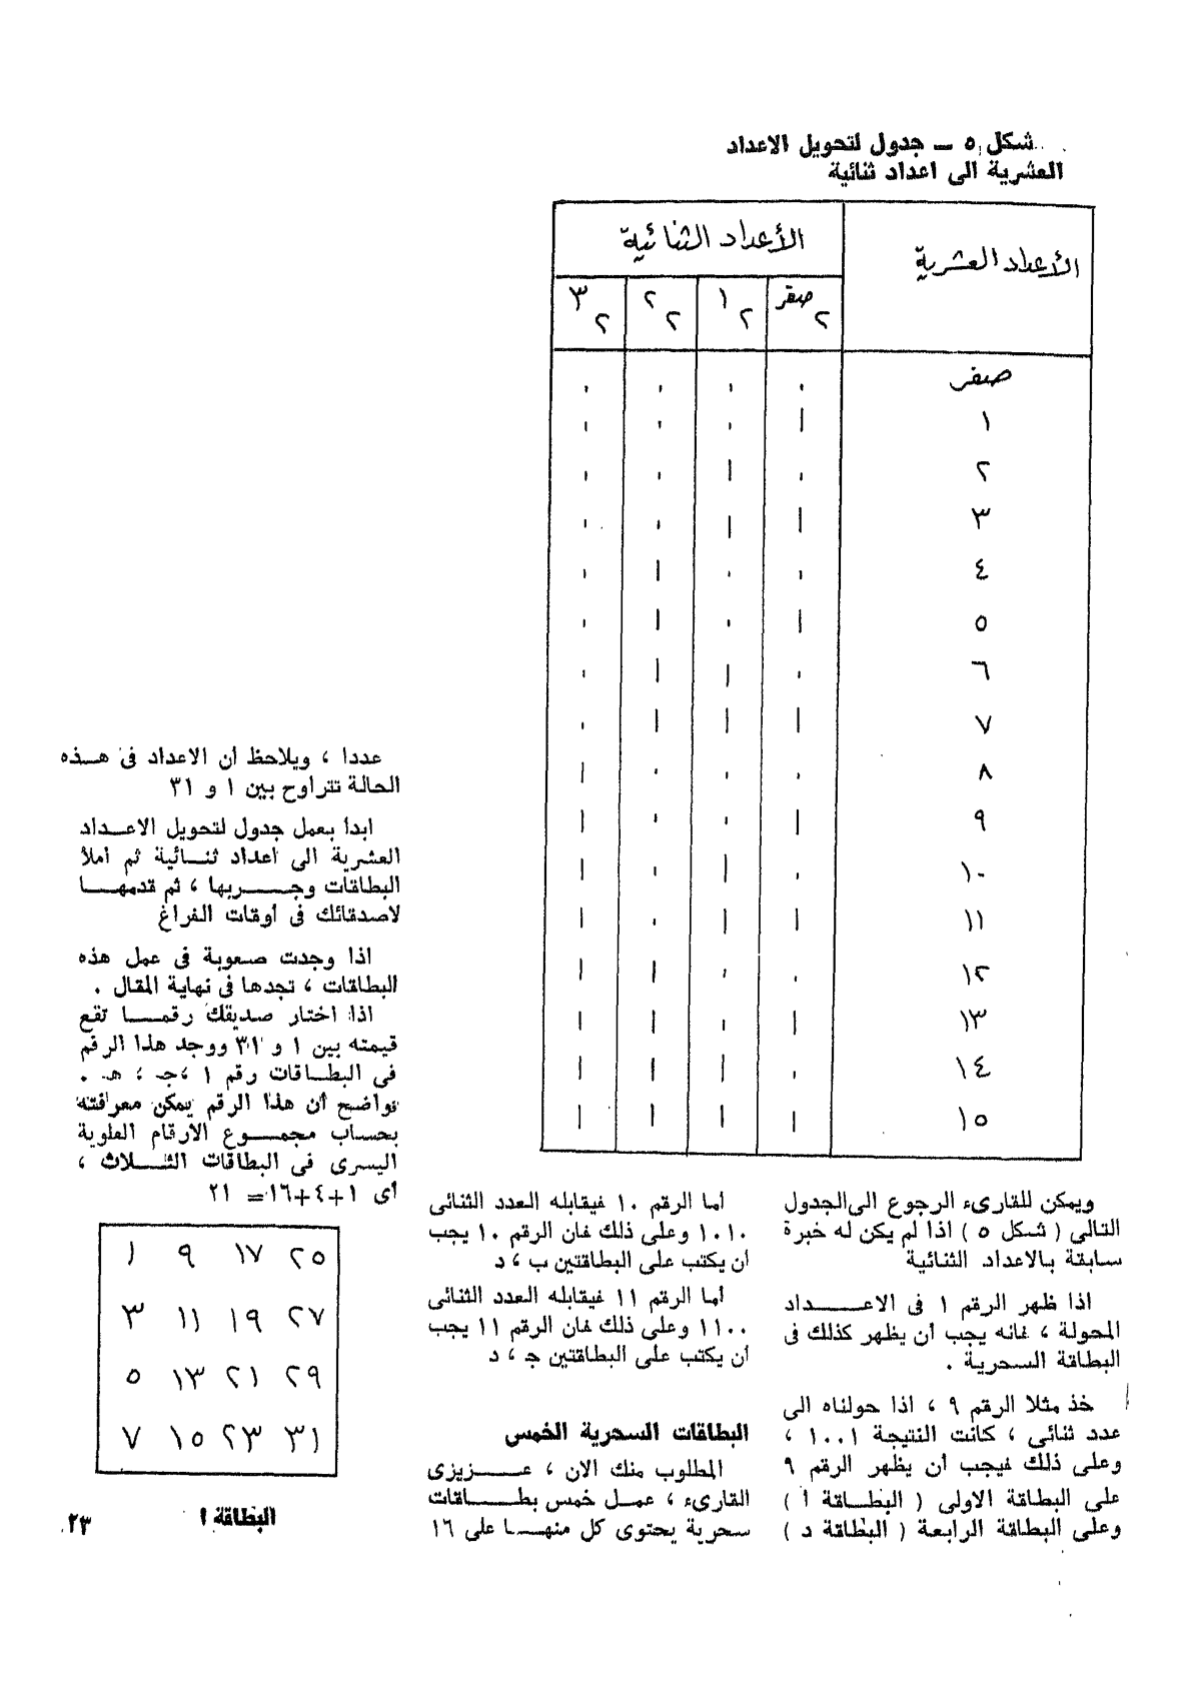 شكل ٥ — جدول لتحويل الاعداد
العشرية الى اعداد ثنائية
الأعداد العشرية الأعداد الثنائية
٢ صفر ٢ ١ ٢ ٢ ٢ ٣
صفر ٠ ٠ ٠ ٠
١ ١ ٠ ٠ ٠
٢ ٠ ١ ٠ ٠
٣ ١ ١ ٠ ٠
٤ ٠ ٠ ١ ٠
٥ ١ ٠ ١ ٠
٦ ٠ ١ ١ ٠
٧ ١ ١ ١ ٠
٨ ٠ ٠ ٠ ١
٩ ١ ٠ ٠ ١
١٠ ٠ ١ ٠ ١
١١ ١ ١ ٠ ١
١٢ ٠ ٠ ١ ١
١٣ ١ ٠ ١ ١
١٤ ٠ ١ ١ ١
١٥ ١ ١ ١ ١
ويمكن للقارىء الرجوع الى الجدول
التالى ( شكل ٥ ) اذا لم يكن له خبرة
سابقة بالاعداد الثنائية
اذا ظهر الرقم ١ فى الاعداد
المحولة ، فانه يجب أن يظهر كذلك فى
البطاقة السحرية .
خذ مثلا الرقم ٩ ، اذا حولناه الى
عدد ثنائى ، كانت النتيجة ١٠٠١ ،
وعلى ذلك فيجب أن يظهر الرقم ٩
على البطاقة الاولى ( البطاقة أ )
وعلى البطاقة الرابعة ( البطاقة د )
أما الرقم ١٠ فيقابله العدد الثنائى
١٠١٠ وعلى ذلك فان الرقم ١٠ يجب
أن يكتب على البطاقتين ب ، د
أما الرقم ١١ فيقابله العدد الثنائى
١١٠٠ وعلى ذلك فان الرقم ١١ يجب
أن يكتب على البطاقتين ج ، د
البطاقات السحرية الخمس
المطلوب منك الان ، عزيزى
القارىء ، عمل خمس بطاقات
سحرية يحتوى كل منها على ١٦
عددا ، ويلاحظ أن الاعداد فى هذه
الحالة تتراوح بين ١ و ٣١
ابدأ بعمل جدول لتحويل الاعداد
العشرية الى أعداد ثنائية ثم أملأ
البطاقات وجربها ، ثم قدمها
لاصدقائك فى أوقات الفراغ
اذا وجدت صعوبة فى عمل هذه
البطاقات ، تجدها فى نهاية المقال .
اذا اختار صديقك رقما تقع
قيمته بين ١ و ٣١ ووجد هذا الرقم
فى البطاقات رقم ١ ، جـ ، هـ .
فواضح أن هذا الرقم يمكن معرفته
بحساب مجموع الارقام العلوية
اليسرى فى البطاقات الثلاث ،
أى ١+٤+١٦= ٢١
١ ٩ ١٧ ٢٥
٣ ١١ ١٩ ٢٧
٥ ١٣ ٢١ ٢٩
٧ ١٥ ٢٣ ٣١
البطاقة أ
٢٣